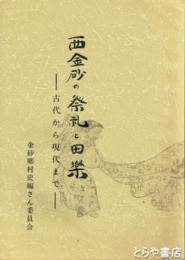 西金砂の祭礼と田楽
―古代から現代まで―
金砂郷村史編さん委員会
とらや書店